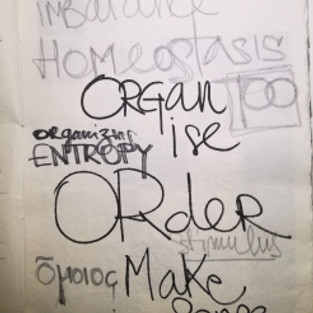 IMBALANCE
HOMEOSTASIS
ORGan
TOO
ise
organizing
ENTROPY
ORdeR
stimulus
ὅμοιος Make